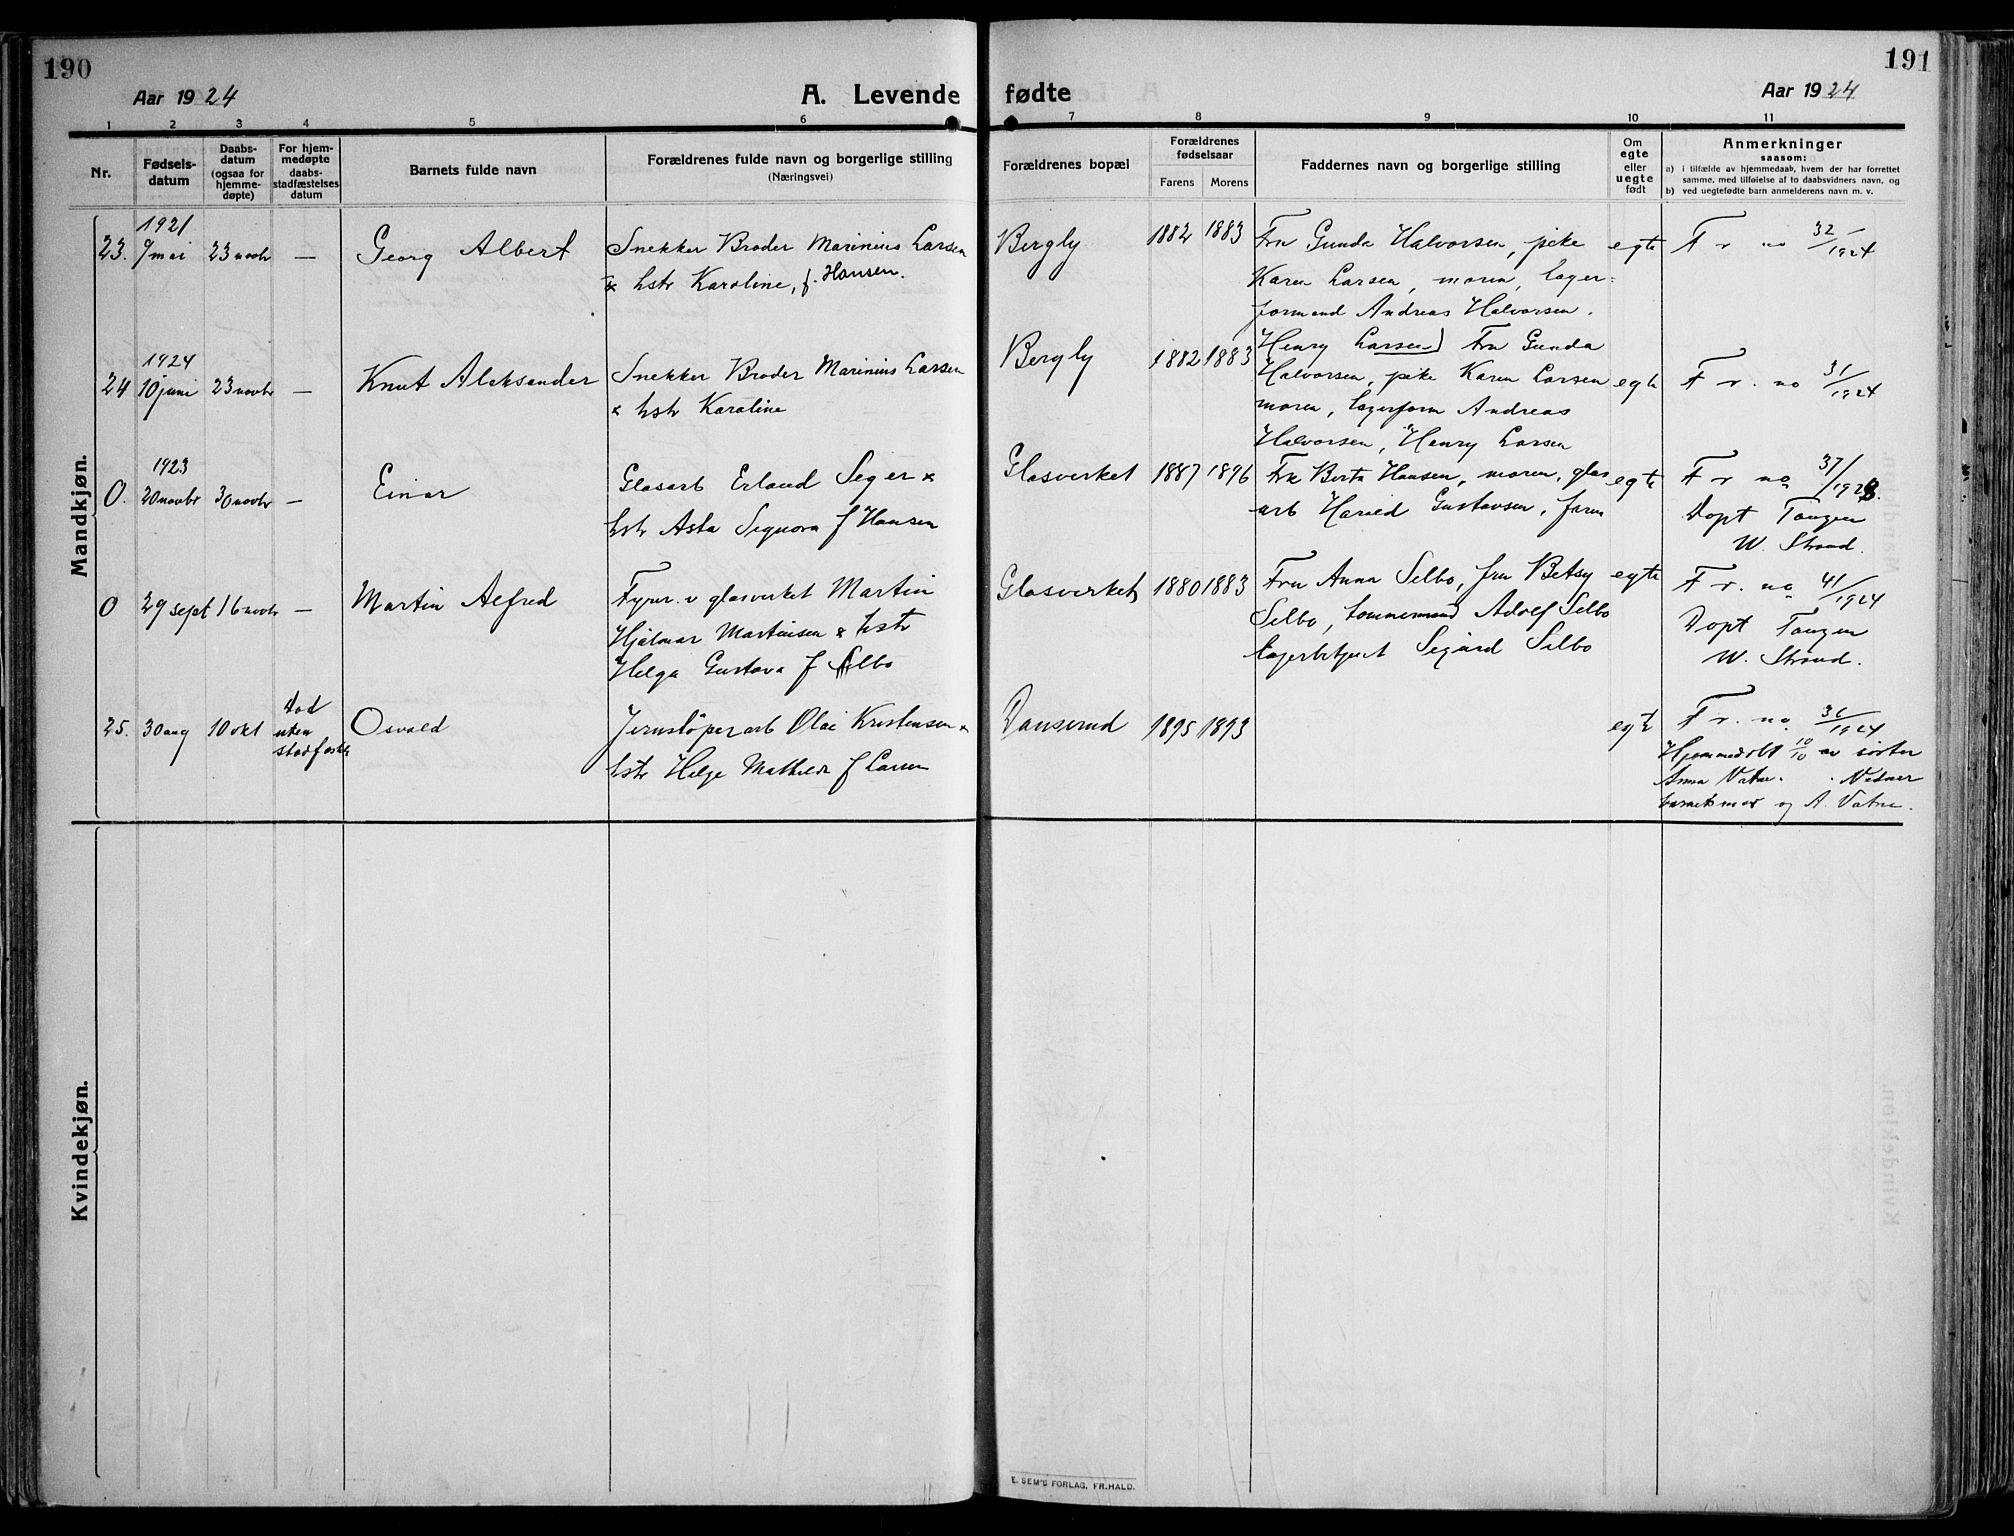 190
Aar 1924
A. Levende
fødte
Aar 1924
191
1 2 3 4 5 6 7 8 9 10 11
Nr.
Fødsels-
datum
Daabs-
datum
(ogsaa for
hjemme-
døpte)
For hjem-
medøpte
daabs-
stadfæstelses
datum
Barnets fulde navn
Forældrenes fulde navn og borgerlige stilling
(Næringsvei)
Forældrenes bopæl
Forældrenes
fødselsaar
Farens Morens
Faddernes navn og borgerlige stilling
Om
egte
eller
uegte
født
Anmerkninger
saasom:
a) i tilfælde av hjemmedaab, hvem der har forrettet
samme, med tilføielse af to daabsvidners navn, og
b) ved uegtefødte barn anmelderens navn m. v.
Mandkjøn.
1921
23. 9/mai 23 novbr — Georg Albert
Snekker Broder Marinius Larsen
& hstr Karoline, f. Hansen.
Bergly 1882 1883
Fru Gunda Halvorsen, pike
Karen Larsen, moren, lager-
formand Andreas Halvorsen.
Henry Larsen)
egte
F r no 32/1924
1924
24 10 juni 23 novbr — Knut Aleksander
Snekker Broder Marinius Larsen
& hstr Karoline
Bergly 1882 1883
Fru Gunda
Halvorsen, pike Karen Larsen
moren, lagerform Andreas
Halvorsen, Henry Larsen
egte
F r. no 31/1924
1923
0. 20 novbr 30 novbr — Einar
Glasarb Erland Seger &
hstr Asta Signora f Hansen
Glasverket 1887 1896
Frk Berta Hansen, moren, glas
arb Harald Gustavsen, faren
egte
F r no 37/1923.
Døpt Tangen
W. Strand.
0 29 sept 16 novbr — Martin Alfred
Fyrer v glasverket Martin
Hjalmar Martinsen & hstr
Helga Gustava f Selbo
Glasverket 1880 1883
Fru Anna Selbo, fru Betsy
Selbo, tømmermand Adolf Selbo
lagerbetjent Sigurd Selbo
egte
F r. no 41/1924
Døpt Tangen
W. Strand.
25. 30 aug 10 okt
Død
uten
stadfæst
Osvald
Jernstøperarb Olai Kristensen &
hstr Helga Mathilde f Larsen
Danserud 1895 1893
egte
F r. no 36/1924
Hjemmedøbt 10/10 av søster
Anna Vatne. Vidner
barnets mor og A. Vatne.
Kvindekjøn.
E. SEM'S FORLAG, FR.HALD.